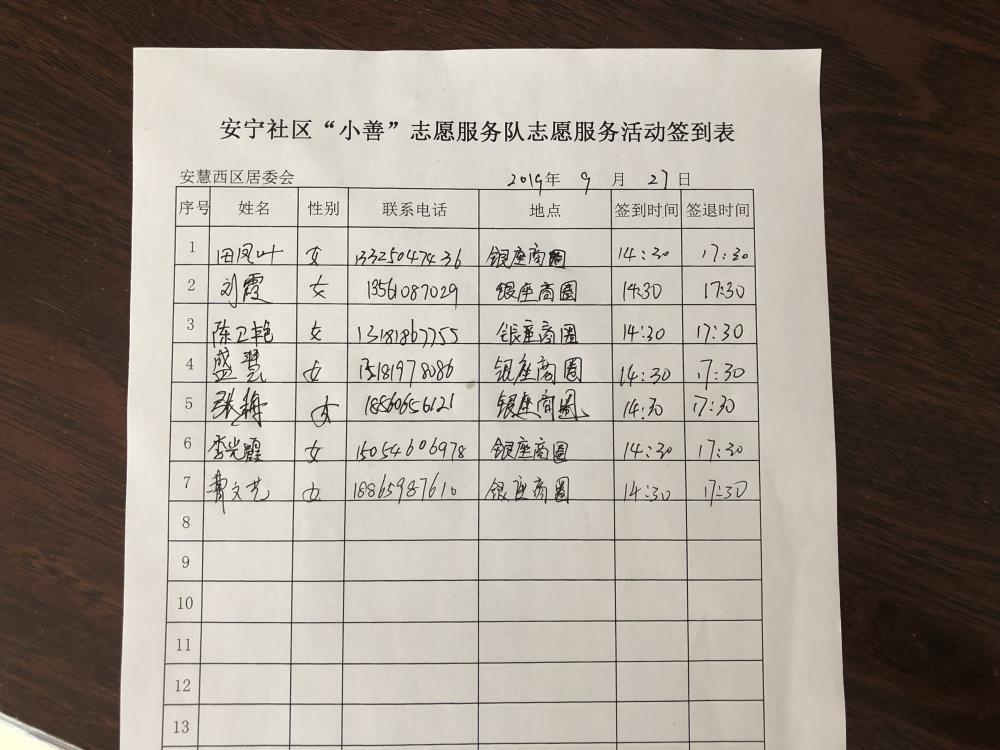 安宁社区“小善”志愿服务队志愿服务活动签到表
安慧西区居委会 2019年 9 月 27日
序号 姓名 性别 联系电话 地点 签到时间 签退时间
1 田凤叶 女 13325047436 银座商圈 14:30 17:30
2 刘霞 女 13561087029 银座商圈 14:30 17:30
3 陈卫艳 女 13181867755 银座商圈 14:30 17:30
4 盛慧 女 15181978086 银座商圈 14:30 17:30
5 张梅 女 18860656121 银座商圈 14:30 17:30
6 李光霞 女 15054606978 银座商圈 14:30 17:30
7 曹文艺 女 18865987610 银座商圈 14:30 17:30
8
9
10
11
12
13